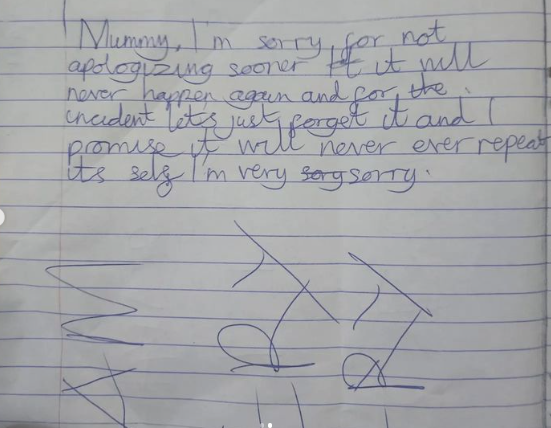 Mummy, I'm sorry, for not
apologizing sooner it will
never happen again and for the
incident lets just forget it and I
promise it will never ever repeat
its self I'm very sorry.